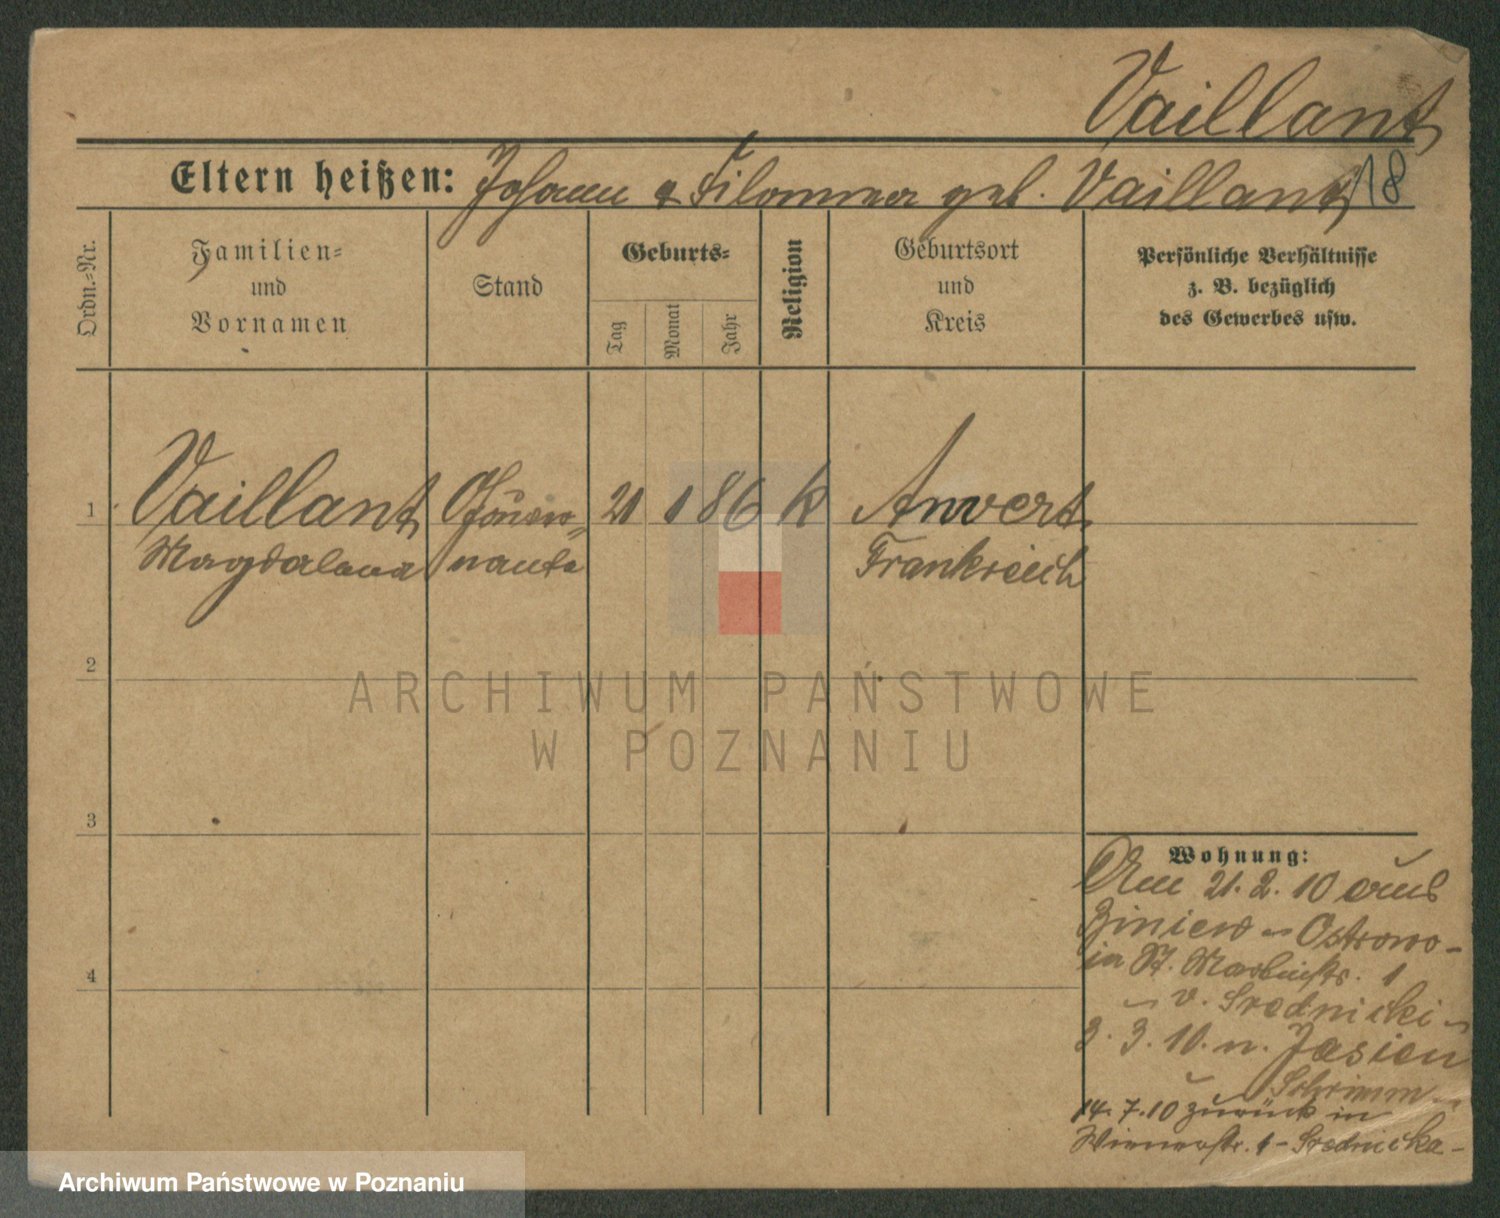 Vaillant
18
Eltern heißen: Johann & Filomena geb. Vaillant
Ordn.-Nr.
Familien-
und
Vornamen
Stand
Geburts-
Tag
Monat
Jahr
Religion
Geburtsort
und
Kreis
Persönliche Verhältnisse
z. B. bezüglich
des Gewerbes usw.
1
Vaillant
Magdalena
Gouver-
nante
21 1 86 k
Anvert
Frankreich
2
3
4
Wohnung:
Am 21. 2. 10 aus
Ostrowo-
in St. Martinstr. 1
v. Srednicki
3. 3. 10. n. Jasien
Schrimm
14. 7. 10 zurück in
1 - Srednicka -
ARCHIWUM PAŃSTWOWE
W POZNANIU
Archiwum Państwowe w Poznaniu